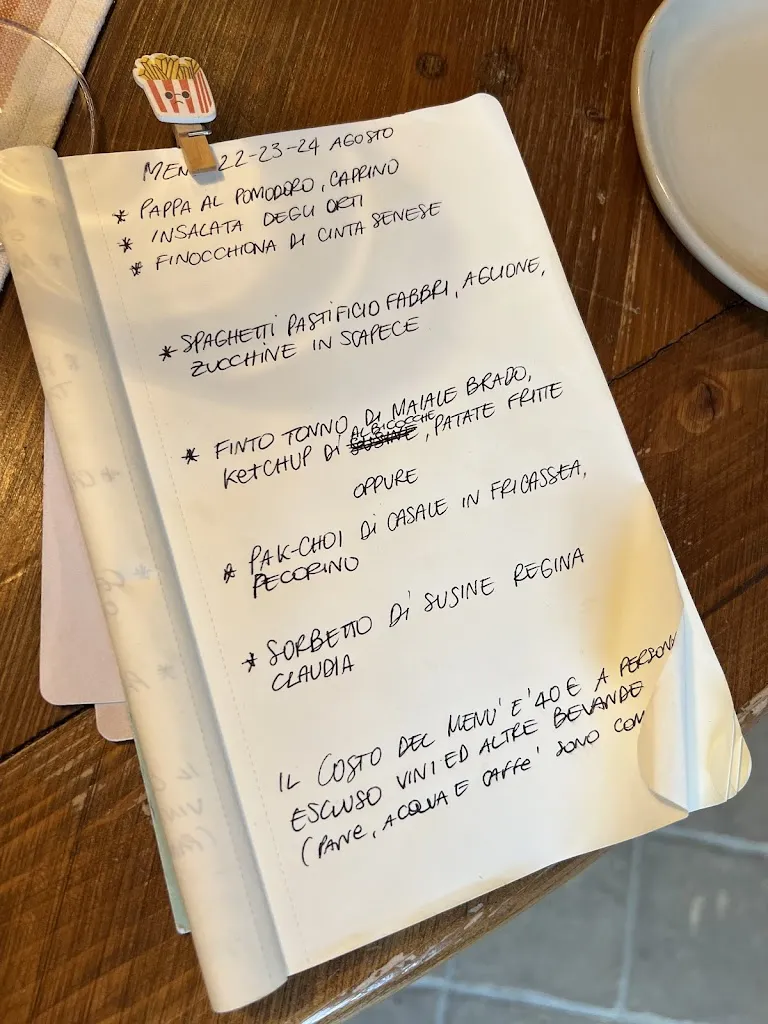 MEN 22-23-24 AGOSTO
* PAPPA AL POMODORO, CAPRINO
* INSALATA DEGLI ORTI
* FINOCCHIONA DI CINTA SENESE
* SPAGHETTI PASTIFICIO FABBRI, AGLIONE,
ZUCCHINE IN SCAPECE
* FINTO TONNO DI MAIALE BRADO,
KETCHUP DI ALBICOCCHE, PATATE FRITTE
OPPURE
* PAK-CHOI DI CASALE IN FRICASSEA,
PECORINO
* SORBETTO DI SUSINE REGINA
CLAUDIA
IL COSTO DEL MENU' E' 40€ A PERSONA
ESCLUSO VINI ED ALTRE BEVANDE
(PANE, ACQUA E CAFFE' SONO COM